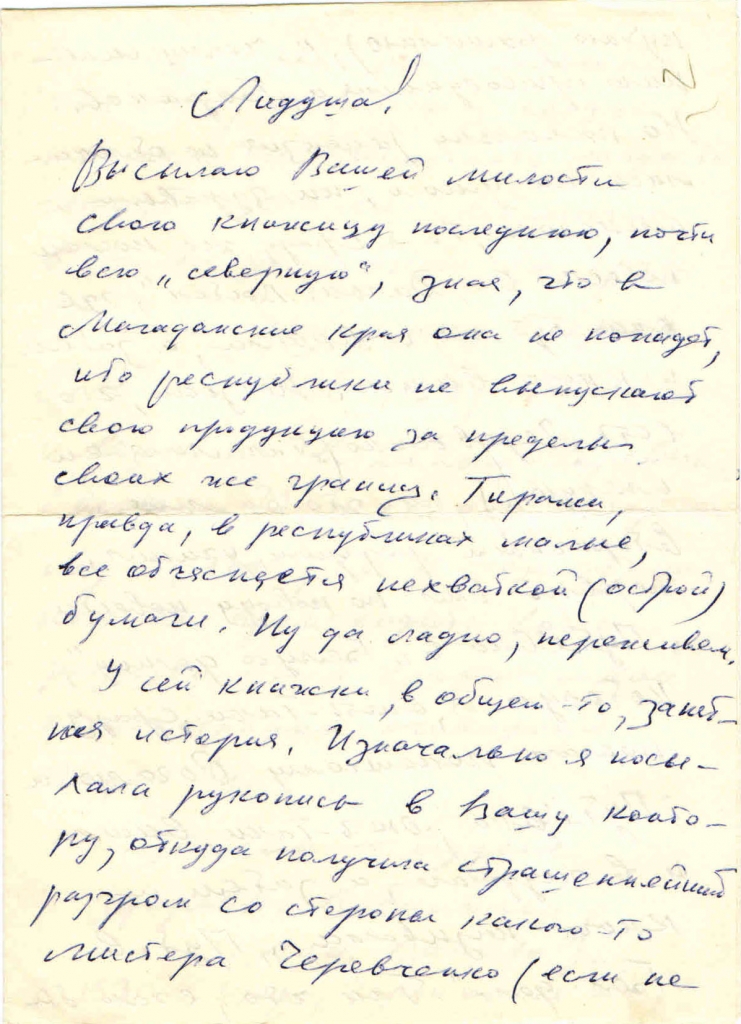 Лидуша!
Высылаю Вашей милости
свою книжицу последнюю, почти
всю „северную“, зная, что в
Магаданские края она не попадет,
ибо республики не выпускают
свою продукцию за пределы
своих же границ. Тиражи,
правда, в республиках малые,
все объясняется нехваткой (острой)
бумаги. Ну да ладно, переживем.
У сей книжки, в общем-то, занят-
ная история. Изначально я посы-
лала рукопись в Вашу конто-
ру, откуда получила страшеннейший
разгром со стороны какого-то
мистера Черевченко (если не